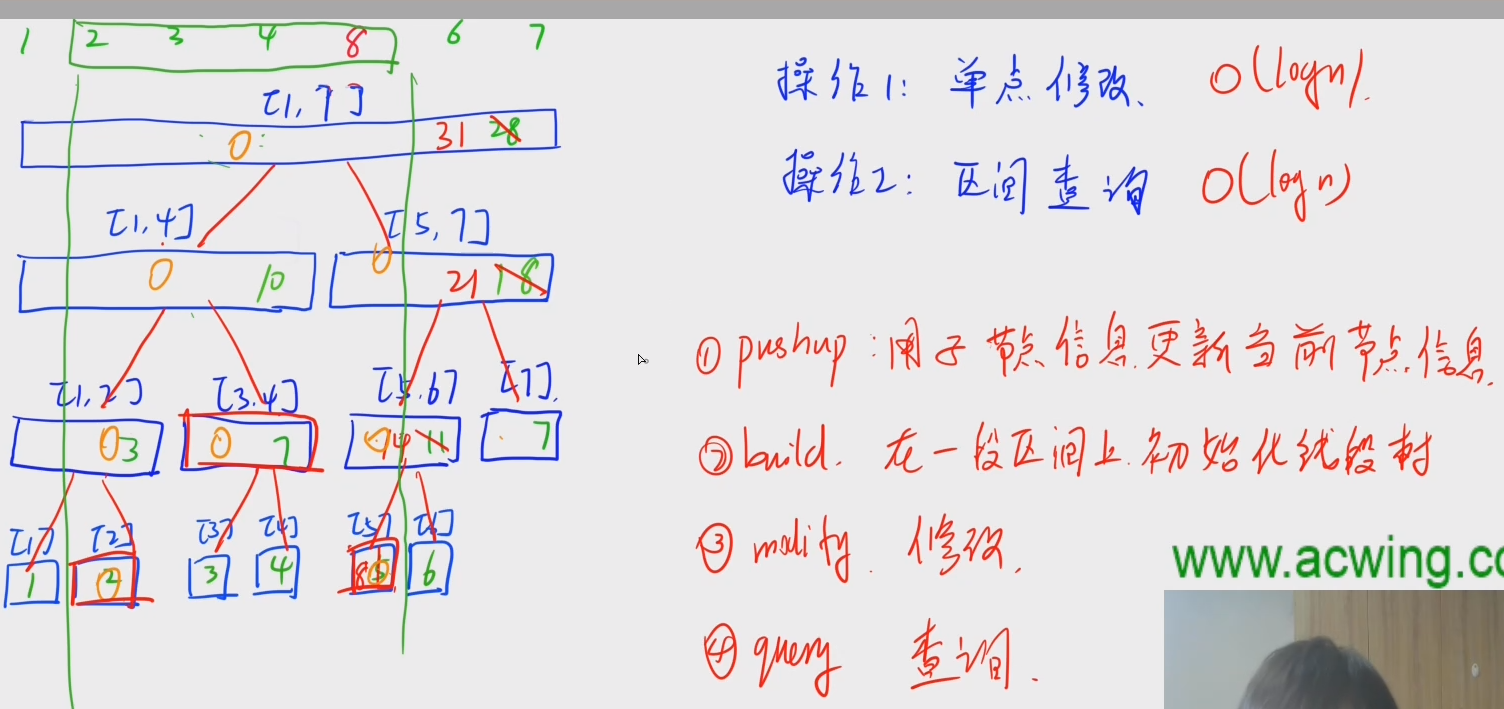 1 2 3 4 8 6 7
[1,7]
0 31 28
[1,4] [5,7]
0 10 0 21 18
[1,2] [3.4] [5.6] [7]
0 3 0 7 14 11 7
[1] [2] [3] [4] [5] [6]
1 2 3 4 8 5 6
操作1: 单点修改、 O(logn).
操作2: 区间查询 O(logn)
① pushup: 用子节点信息更新当前节点信息.
② build. 在一段区间上初始化线段树
③ modify. 修改.
④ query 查询.
www.acwing.co